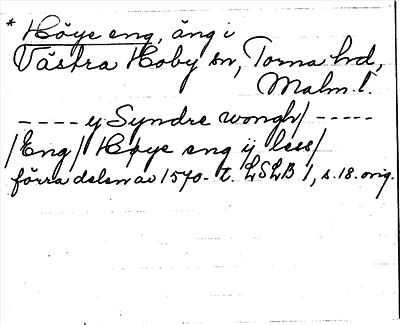 * Höye eng, äng i
Västra Hoby sn, Torna hd,
Malm. l.
---- y Syndre wongh/ -----
/Eng/ Høye eng ij less/
förra delen av 1570-t. LSLB 1, s.18. orig.